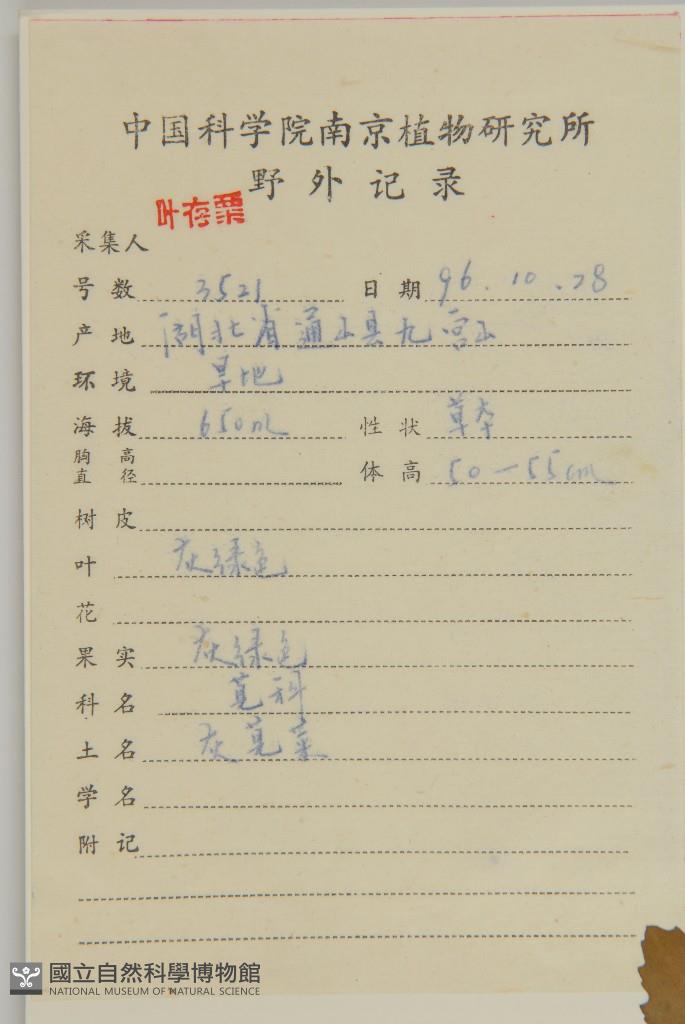 中国科学院南京植物研究所
野外记录
采集人 叶存粟
号数 3521 日期 96.10.28
产地 湖北省通山县九宫山
环境 旱地
海拔 650m 性状 草本
胸高直径 体高 50—55cm
树皮
叶 灰绿色
花
果实 灰绿色
科名 苋科
土名 灰苋菜
学名
附记
國立自然科學博物館
NATIONAL MUSEUM OF NATURAL SCIENCE